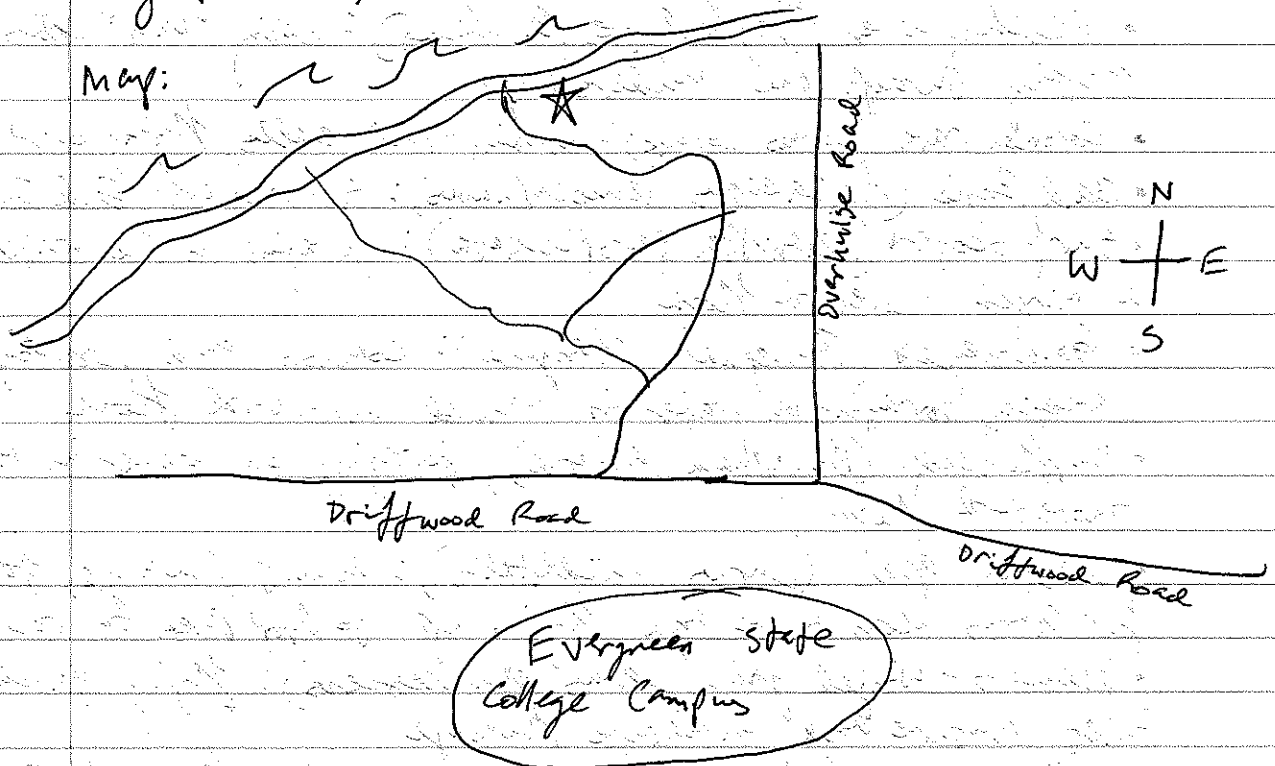 Map:
Overhulse Road
N
W E
S
Driftwood Road
Driftwood Road
Evergreen State
College Campus